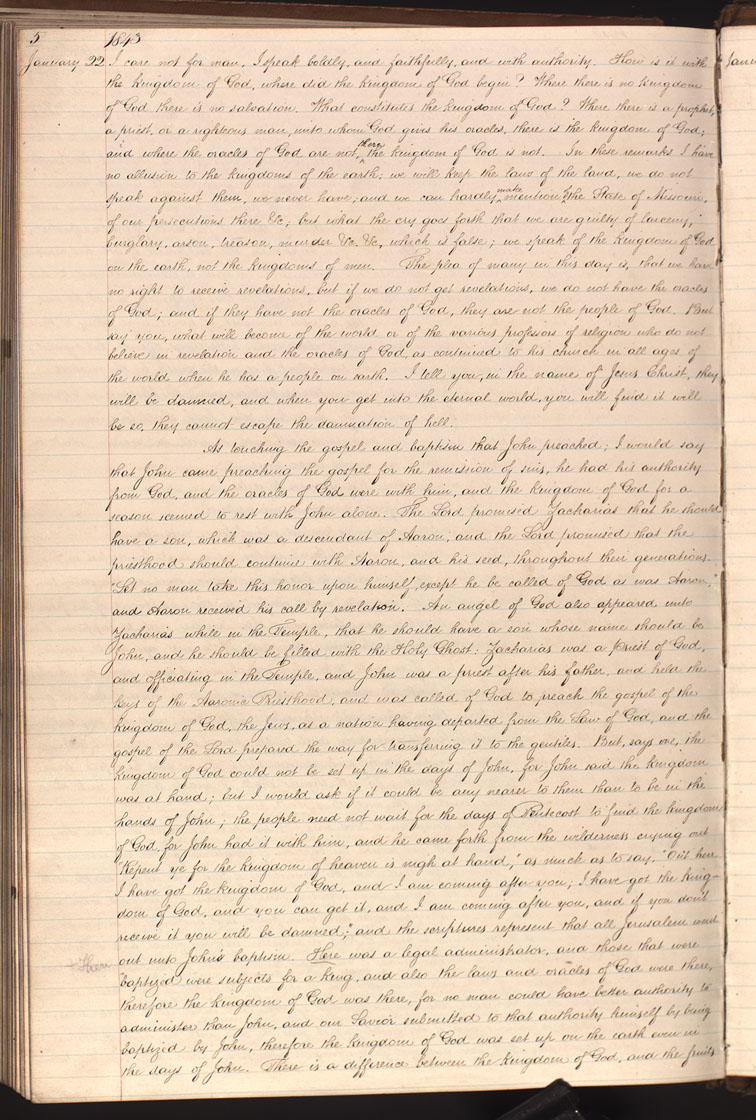 5 1843
January 22 I care not for man. I speak boldly, and faithfully, and with authority. How is it with
the kingdom of God, where did the kingdom of God begin? Where there is no kingdom
of God there is no salvation. What constitutes the kingdom of God? Where there is a prophet,
a priest, or a righteous man, unto whom God gives his oracles, there is the kingdom of God;
and where the oracles of God are not, there the kingdom of God is not. In these remarks I have
no allusion to the kingdoms of the earth; we will keep the laws of the land, we do not
speak against them, we never have; and we can hardly make mention of the State of Missouri,
of our persecutions there &c; but what the cry goes forth that we are guilty of larceny,
burglary, arson, treason, murder &c. &c, which is false; we speak of the kingdom of God
on the earth, not the kingdoms of men. The plea of many in this day is, that we have
no right to receive revelations, but if we do not get revelations, we do not have the oracles
of God; and if they have not the oracles of God, they are not the people of God. But
say you, what will become of the world or of the various professors of religion who do not
believe in revelation and the oracles of God, as continued to his church in all ages of
the world when he has a people on earth. I tell you, in the name of Jesus Christ, they
will be damned, and when you get into the eternal world, you will find it will
be so, they cannot escape the damnation of hell.
As touching the gospel and baptism that John preached; I would say
that John came preaching the gospel for the remission of sins, he had his authority
from God, and the oracles of God were with him, and the kingdom of God for a
season seemed to rest with John alone. The Lord promised Zacharias that he should
have a son, which was a descendant of Aaron; and the Lord promised that the
priesthood should continue with Aaron, and his seed, throughout their generations.
"Let no man take this honor upon himself, except he be called of God as was Aaron;"
and Aaron received his call by revelation. An angel of God also appeared unto
Zacharias while in the Temple, that he should have a son whose name should be
John, and he should be filled with the Holy Ghost: Zacharias was a Priest of God,
and officiating in the Temple, and John was a priest after his father, and held the
keys of the Aaronic Priesthood, and was called of God to preach the gospel of the
kingdom of God, the Jews, as a nation having departed from the Law of God, and the
gospel of the Lord prepared the way for transferring it to the gentiles. But, says one, "the
kingdom of God could not be set up in the days of John, for John said the kingdom
was at hand; but I would ask if it could be any nearer to them than to be in the
hands of John; the people need not wait for the days of Pentecost to find the kingdom
of God, for John had it with him, and he came forth from the wilderness crying out
"Repent ye for the kingdom of heaven is nigh at hand," as much as to say, "Out here
I have got the kingdom of God, and I am coming after you; I have got the king-
dom of God, and you can get it, and I am coming after you, and if you don't
receive it you will be damned;" and the scriptures represent that all Jerusalem went
out unto John's baptism. Here was a legal administrator, and those that were
baptized were subjects for a king, and also the laws and oracles of God were there,
therefore the kingdom of God was there, for no man could have better authority to
administer than John, and our Savior submitted to that authority himself by being
baptized by John, therefore the kingdom of God was set up on the earth even in
the days of John. There is a difference between the kingdom of God, and the fruits